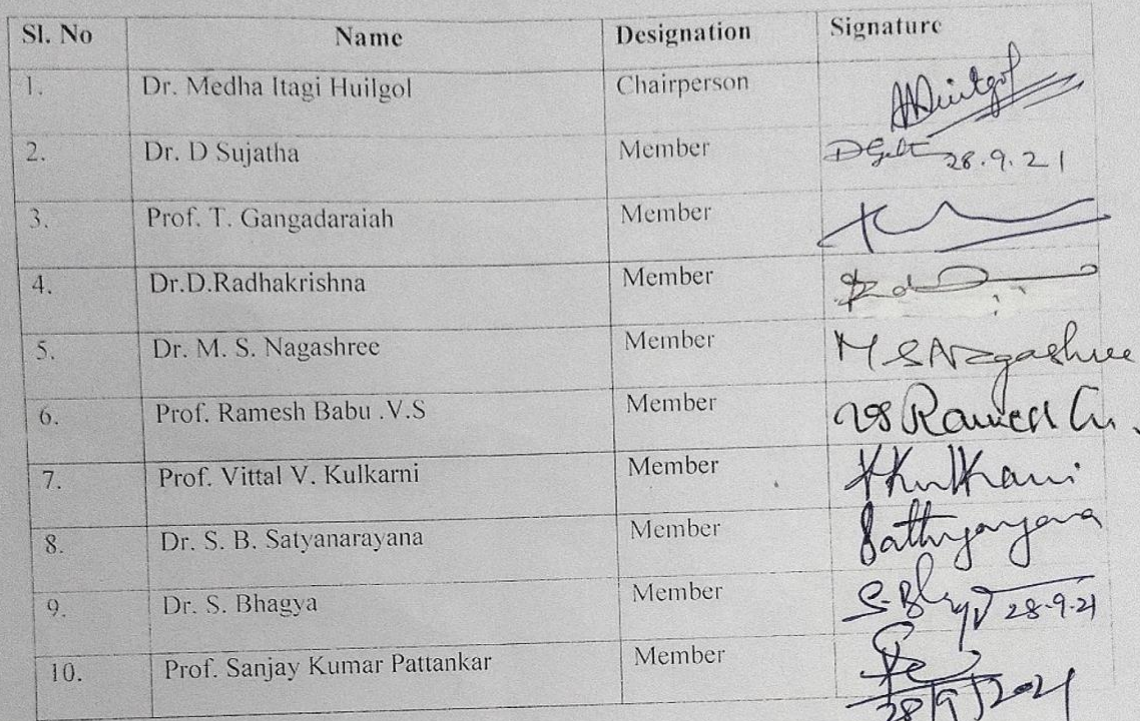 Sl. No Name Designation Signature
1. Dr. Medha Itagi Huilgol Chairperson Huilgol
2. Dr. D Sujatha Member 28.9.21
3. Prof. T. Gangadaraiah Member
4. Dr.D.Radhakrishna Member
5. Dr. M. S. Nagashree Member M S Nagashree
6. Prof. Ramesh Babu .V.S Member
7. Prof. Vittal V. Kulkarni Member Kulkarni
8. Dr. S. B. Satyanarayana Member
9. Dr. S. Bhagya Member 28-9-21
10. Prof. Sanjay Kumar Pattankar Member
28/9/2021